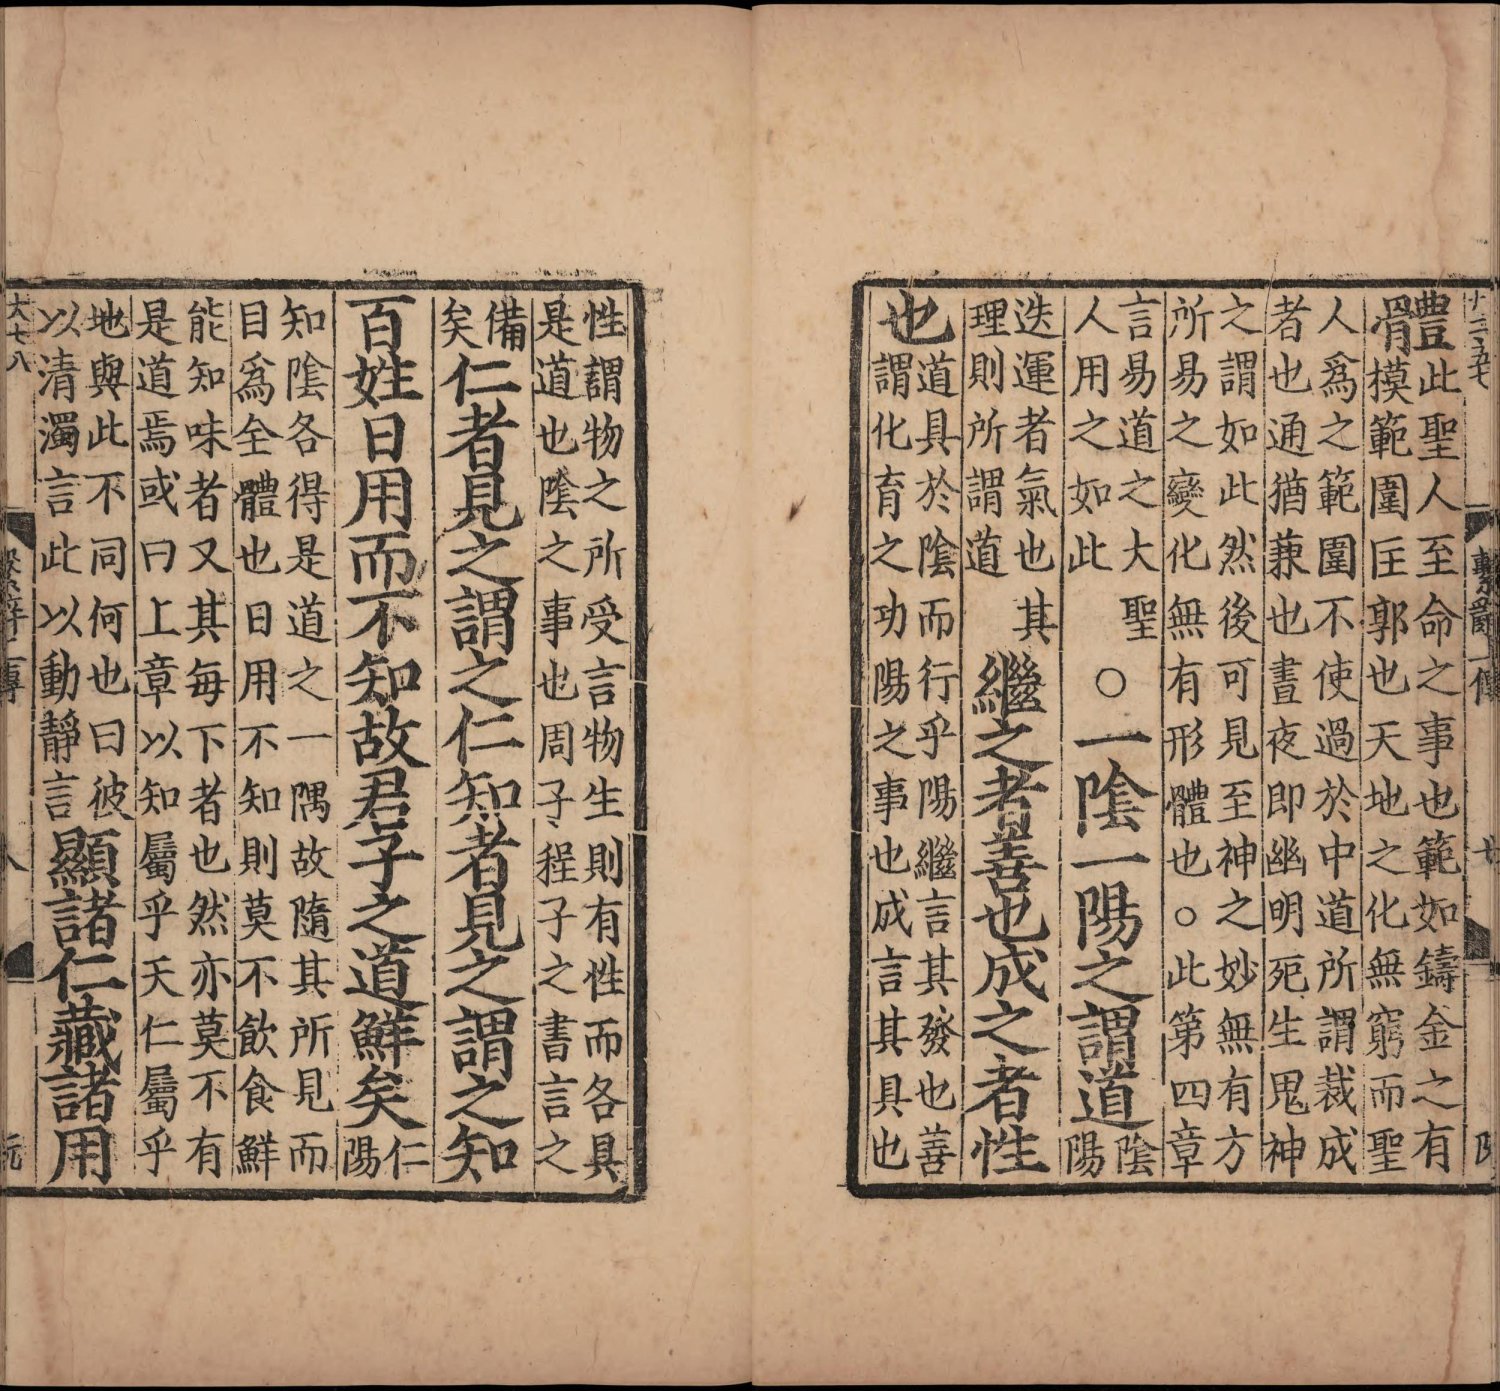 體
此聖人至命之事也範如鑄金之有
模範圍匡郭也天地之化無窮而聖
人爲之範圍不使過於中道所謂裁成
者也通猶兼也晝夜即幽明死生鬼神
之謂如此然後可見至神之妙無有方
所易之變化無有形體也○此第四章
言易道之大聖
人用之如此
○一陰一陽之謂道
陰
陽
迭運者氣也其
理則所謂道
繼之者善也成之者性
也
道具於陰而行乎陽繼言其發也善
謂化育之功陽之事也成言其具也
性謂物之所受言物生則有性而各具
是道也陰之事也周子程子之書言之
備
矣
仁者見之謂之仁知者見之謂之知
百姓日用而不知故君子之道鮮矣
仁
陽
知陰各得是道之一隅故隨其所見而
目爲全體也日用不知則莫不飲食鮮
能知味者又其每下者也然亦莫不有
是道焉或曰上章以知屬乎天仁屬乎
地與此不同何也曰彼
以清濁言此以動靜言
顯諸仁藏諸用
大七八
八